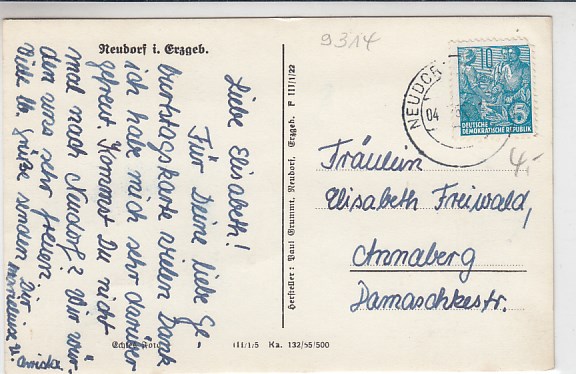 Neudorf i. Erzgeb.
Liebe Elisabeth!
Für Deine liebe Ge-
burtstagskarte vielen Dank
ich habe mich sehr darüber
gefreut. Kommst Du nicht
mal nach Neudorf? Wir wür-
den uns sehr freuen.
Viele h. Grüße senden Dir
u. Christa
Echtes Foto
III/1/5 Ka. 132/55/500
Hersteller: Paul Grummt, Neudorf, Erzgeb. F III/1/22
9314
NEUDOR
04
DEUTSCHE
DEMOKRATISCHE REPUBLIK
5
4,-
Fräulein
Elisabeth Freiwald,
Annaberg
Damaschkestr.